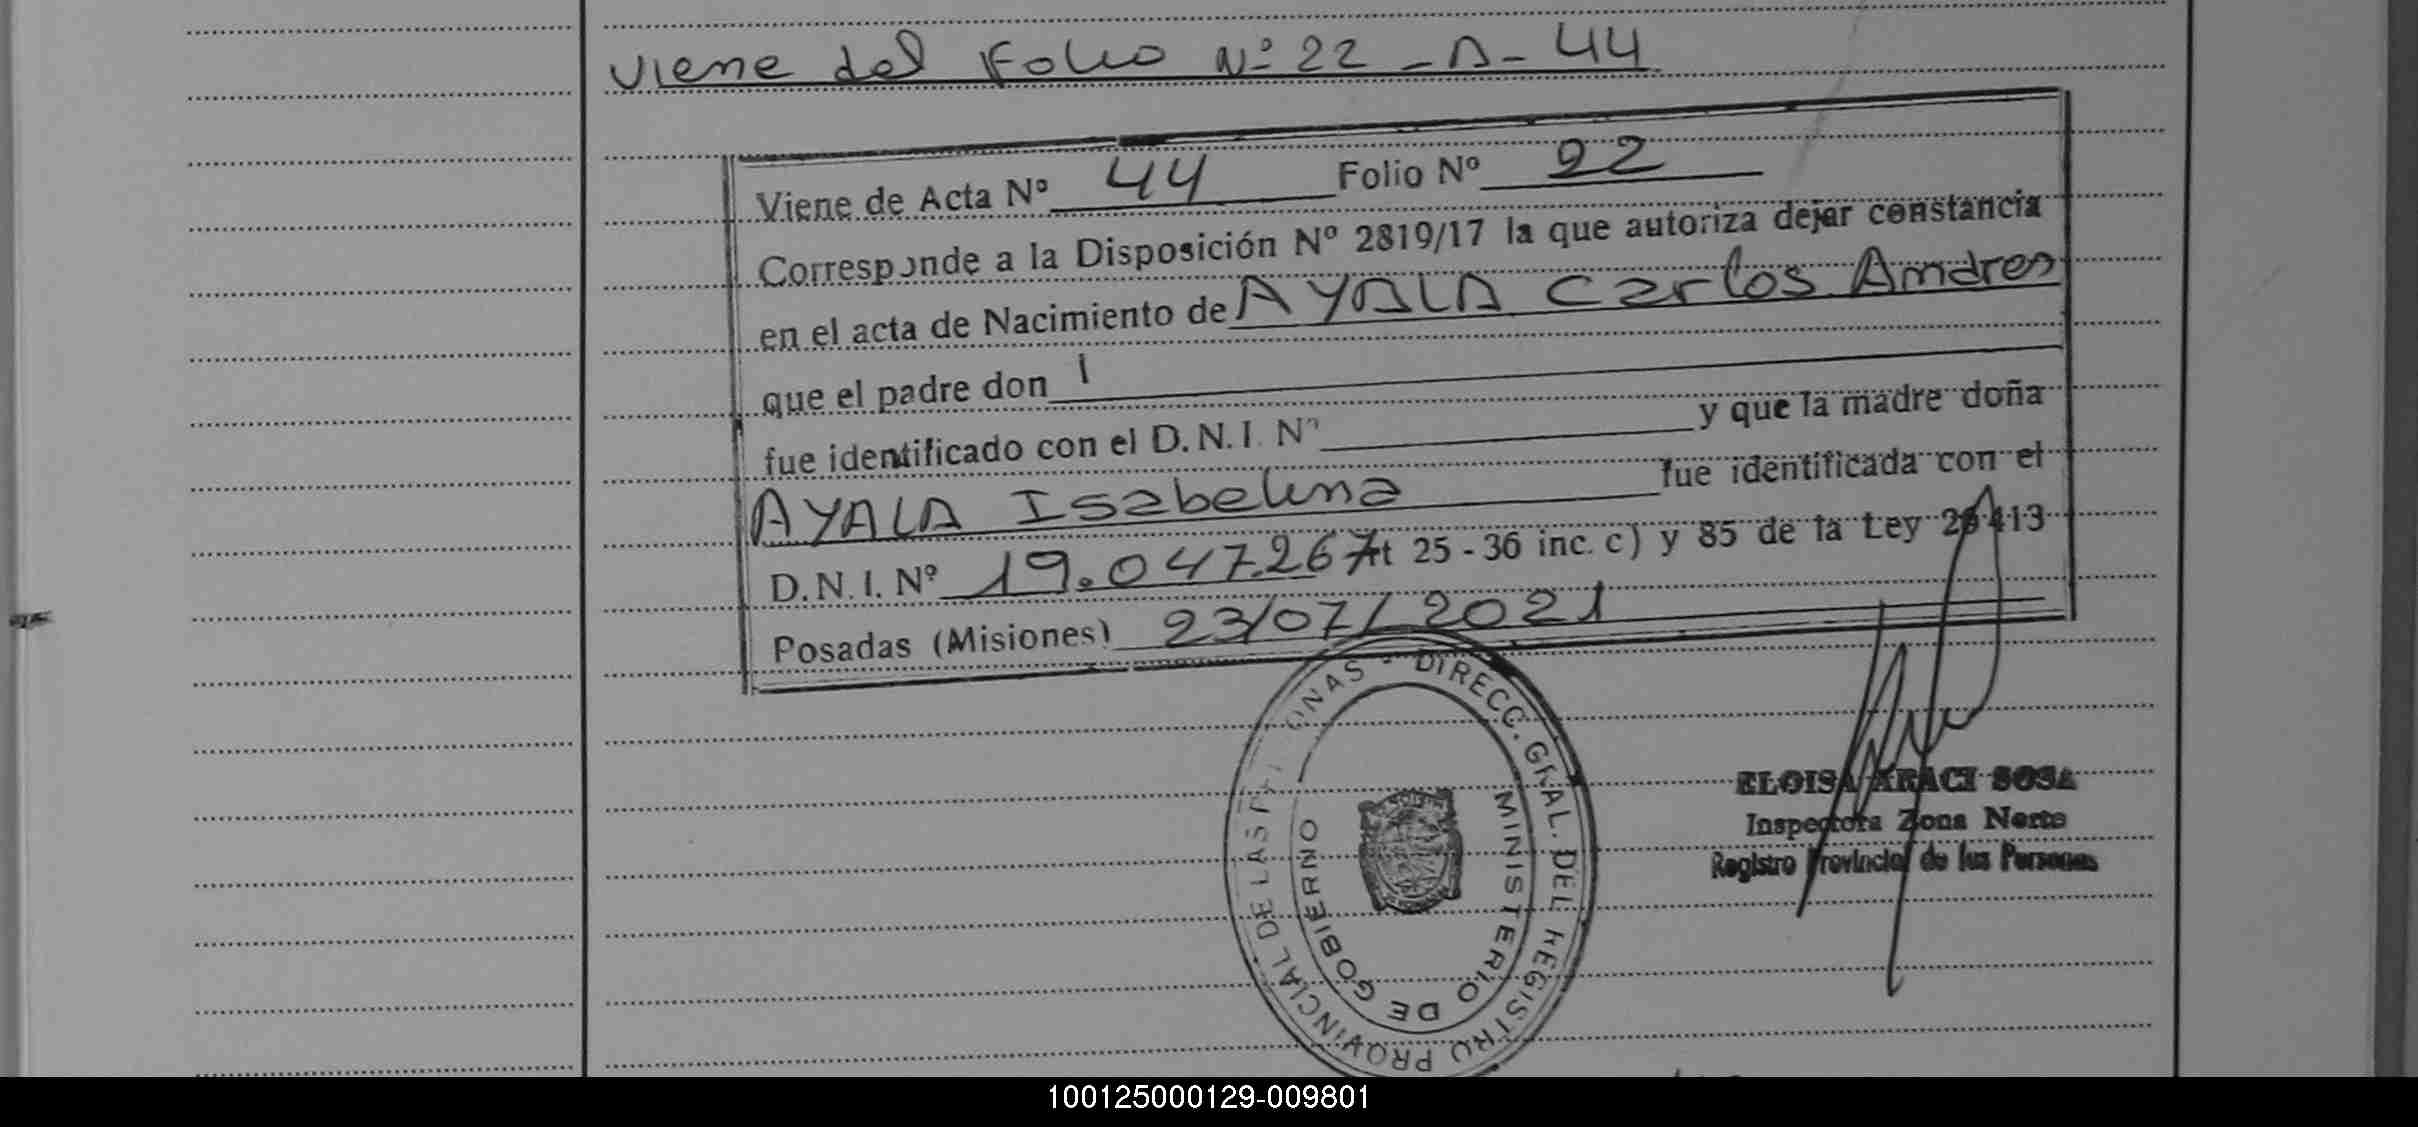 Viene del Folio Nº 22 - A - 44
Viene de Acta Nº 44 Folio Nº 22
Corresponde a la Disposición Nº 2819/17 la que autoriza dejar constancia
en el acta de Nacimiento de AYALA Carlos Andres
que el padre don
fue identificado con el D.N.I. Nº y que la madre doña
AYALA Isabelina fue identificada con el
D.N.I. Nº 19.047.267 Art 25 - 36 inc. c) y 85 de la Ley 26413
Posadas (Misiones) 23/07/2021
DIRECC. GRAL. DEL REGISTRO PROVINCIAL DE LAS PERSONAS
MINISTERIO DE GOBIERNO
ELOISA ARACI SOSA
Inspectora Zona Norte
Registro Provincial de las Personas
100125000129-009801